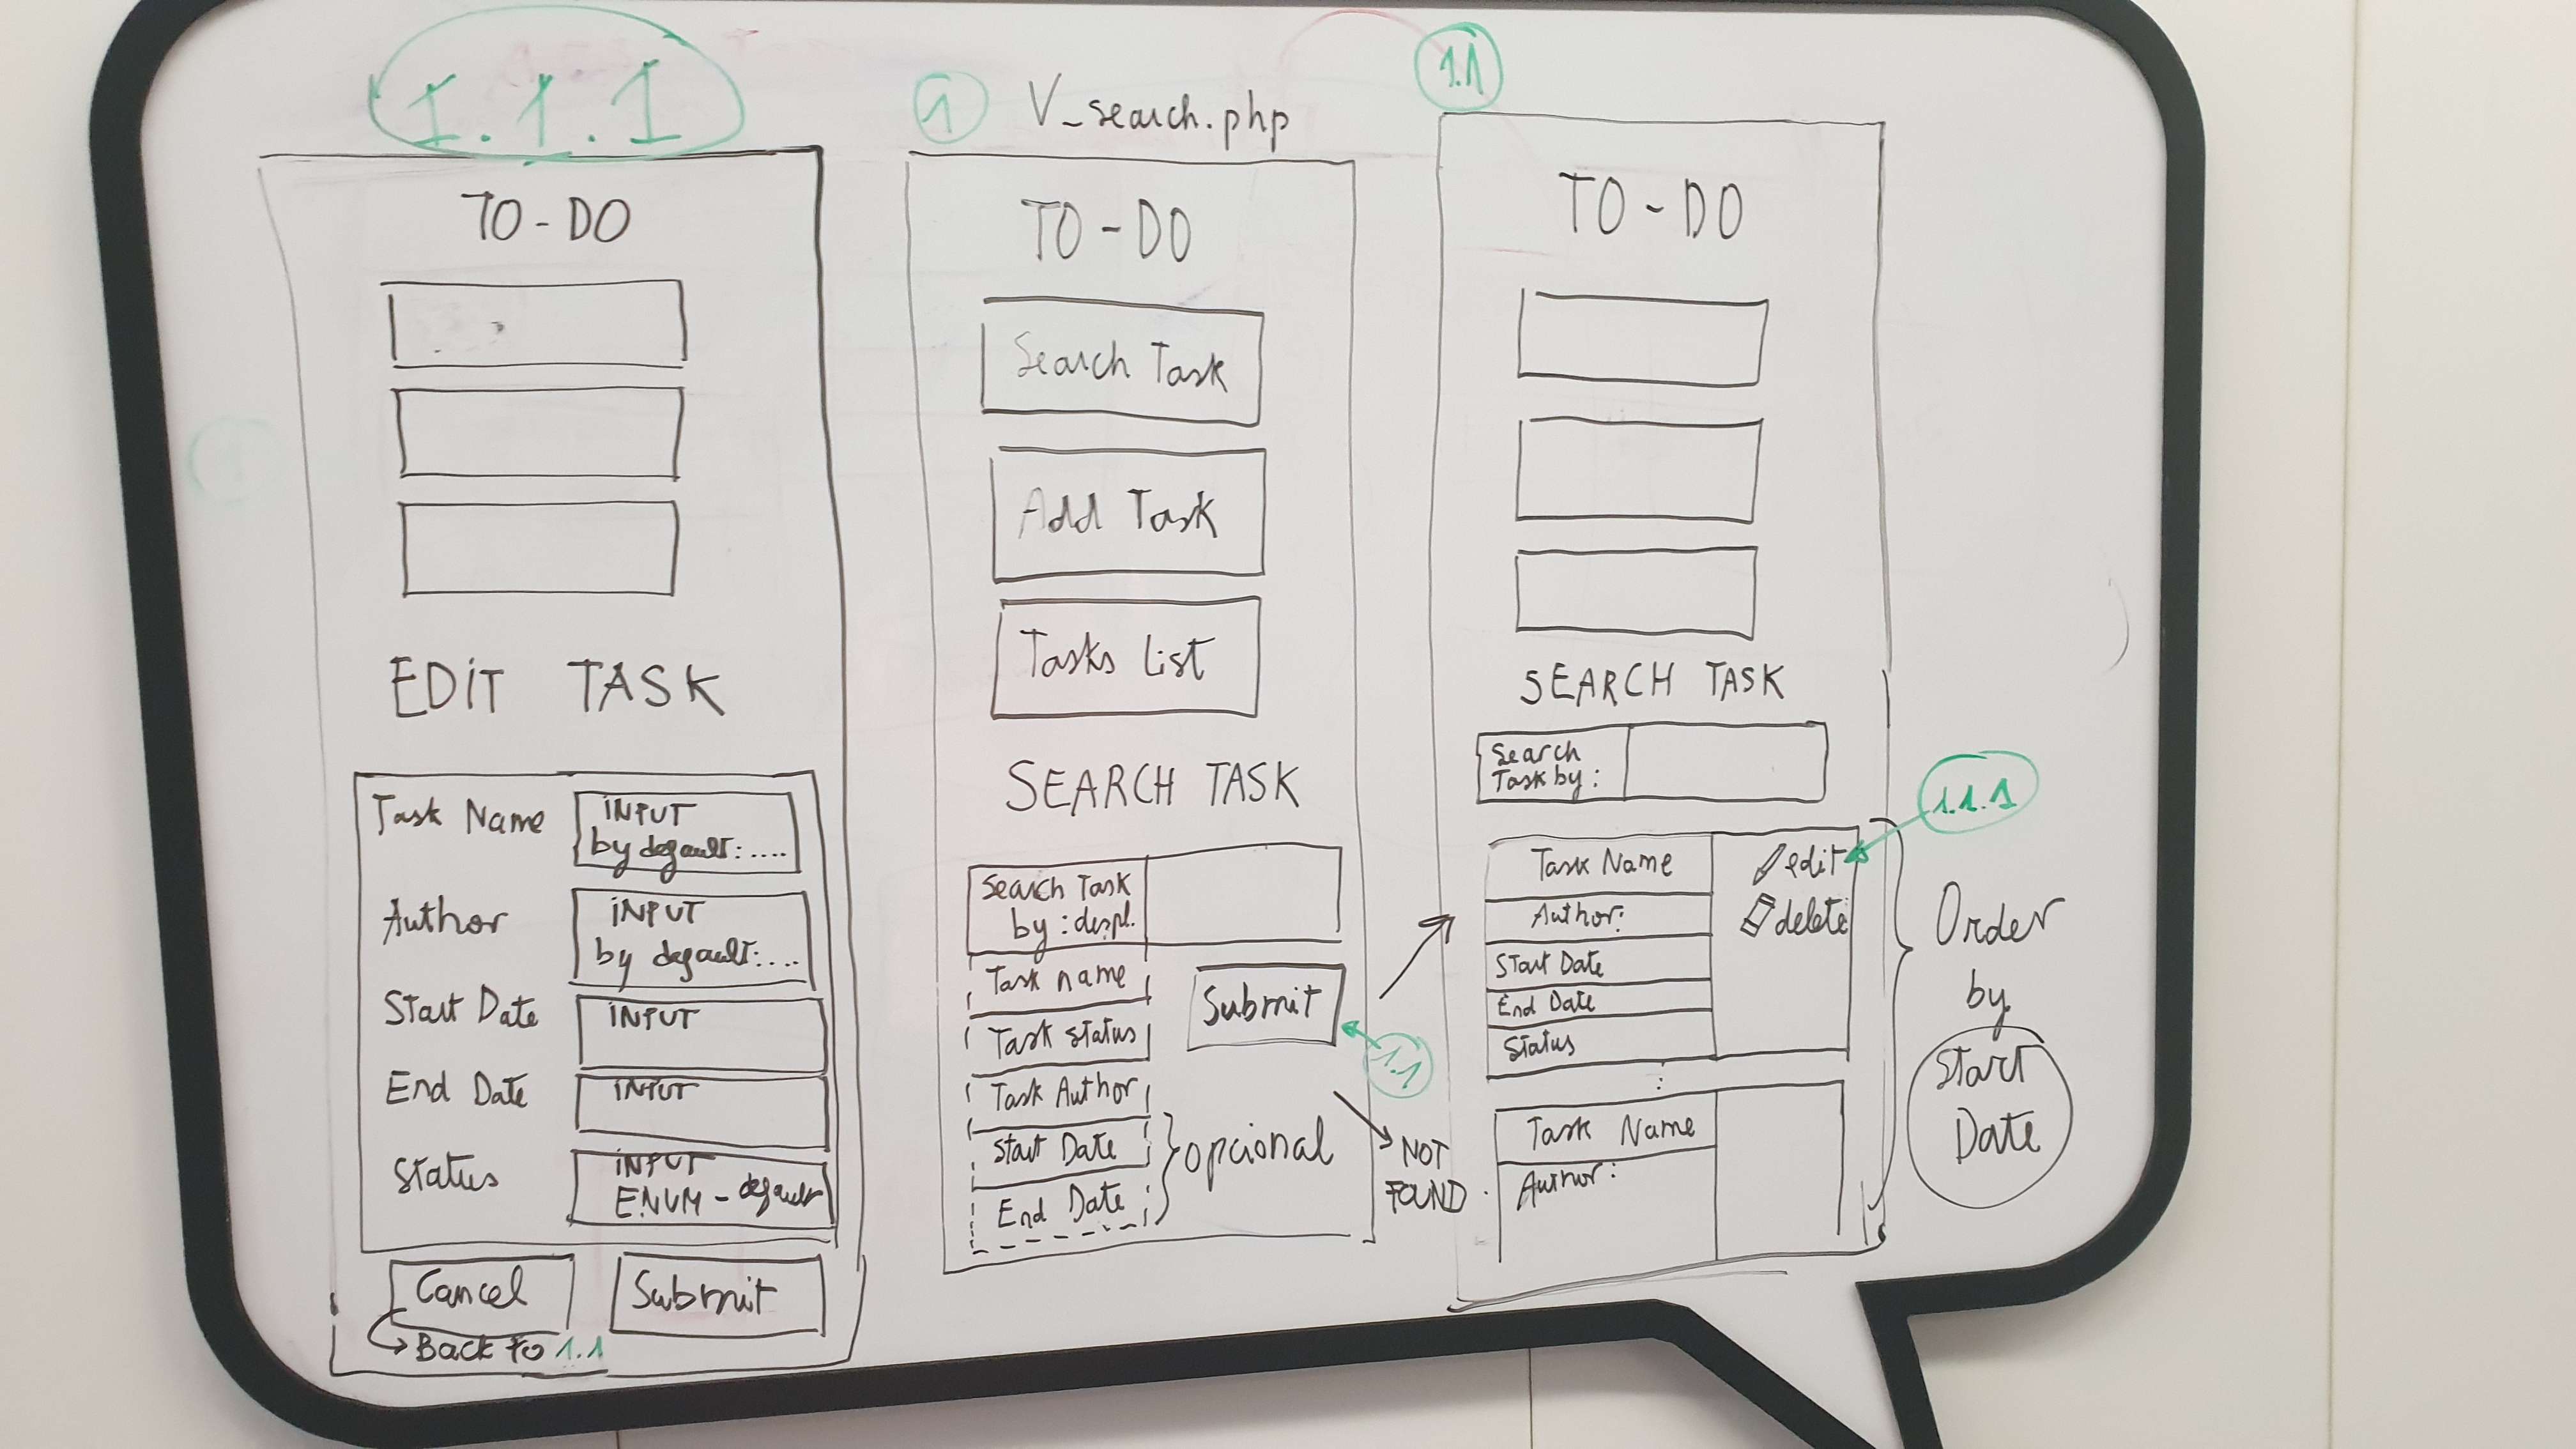 1.1.1
TO-DO
EDIT TASK
Task Name
INPUT
by default: ....
Author
INPUT
by default: ....
Start Date
INPUT
End Date
INPUT
Status
INPUT
ENUM - default
Cancel
Submit
Back to 1.1
1
V_search.php
TO-DO
Search Task
Add Task
Tasks List
SEARCH TASK
Search Task
by: despl.
Task name
Task Status
Task Author
Start Date
End Date
opcional
Submit
1.1
NOT
FOUND
1.1
TO-DO
SEARCH TASK
Search
Task by:
Task Name
Author:
Start Date
End Date
Status
edit
delete
1.1.1
:
Task Name
Author:
Order
by
Start
Date